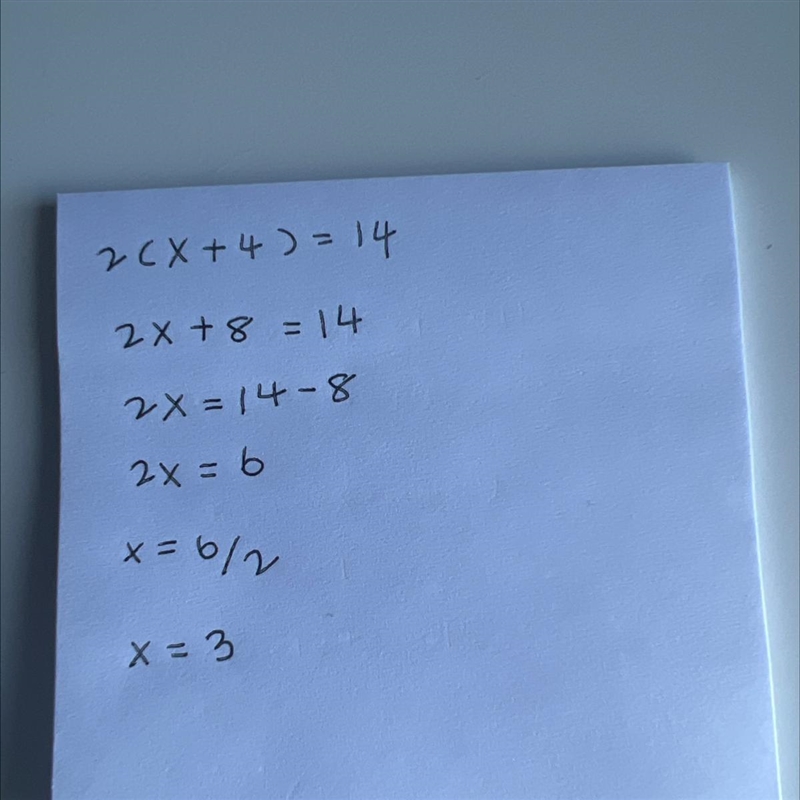 2(x+4)=14
2x+8=14
2x=14-8
2x=6
x=6/2
x=3